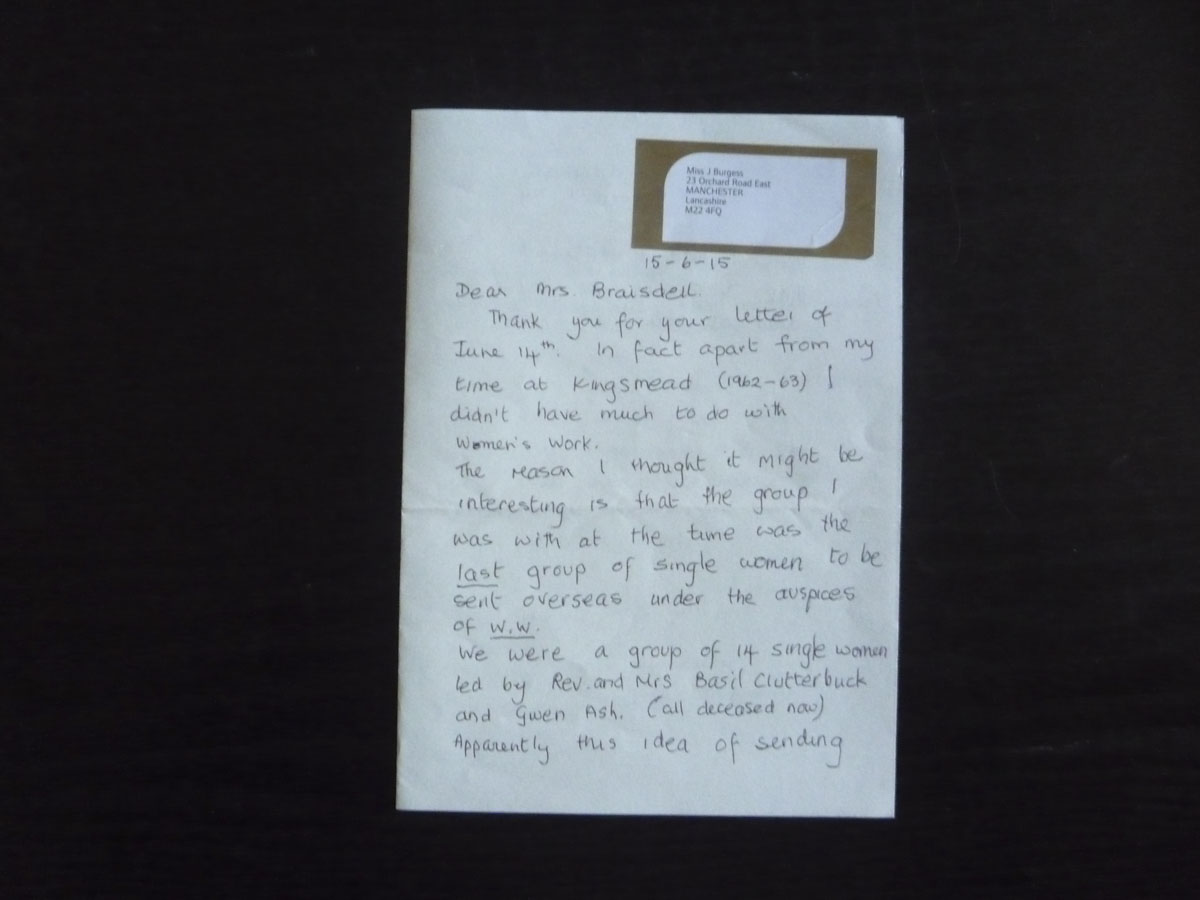 Miss J Burgess
23 Orchard Road East
MANCHESTER
Lancashire
M22 4FQ
15-6-15
Dear Mrs. Braisdell.
Thank you for your letter of
June 14th. In fact apart from my
time at Kingsmead (1962-63) I
didn't have much to do with
Women's Work.
The reason I thought it might be
interesting is that the group I
was with at the time was the
last group of single women to be
sent overseas under the auspices
of W.W.
We were a group of 14 single women
led by Rev. and Mrs Basil Clutterbuck
and Gwen Ash. (all deceased now)
Apparently this idea of sending